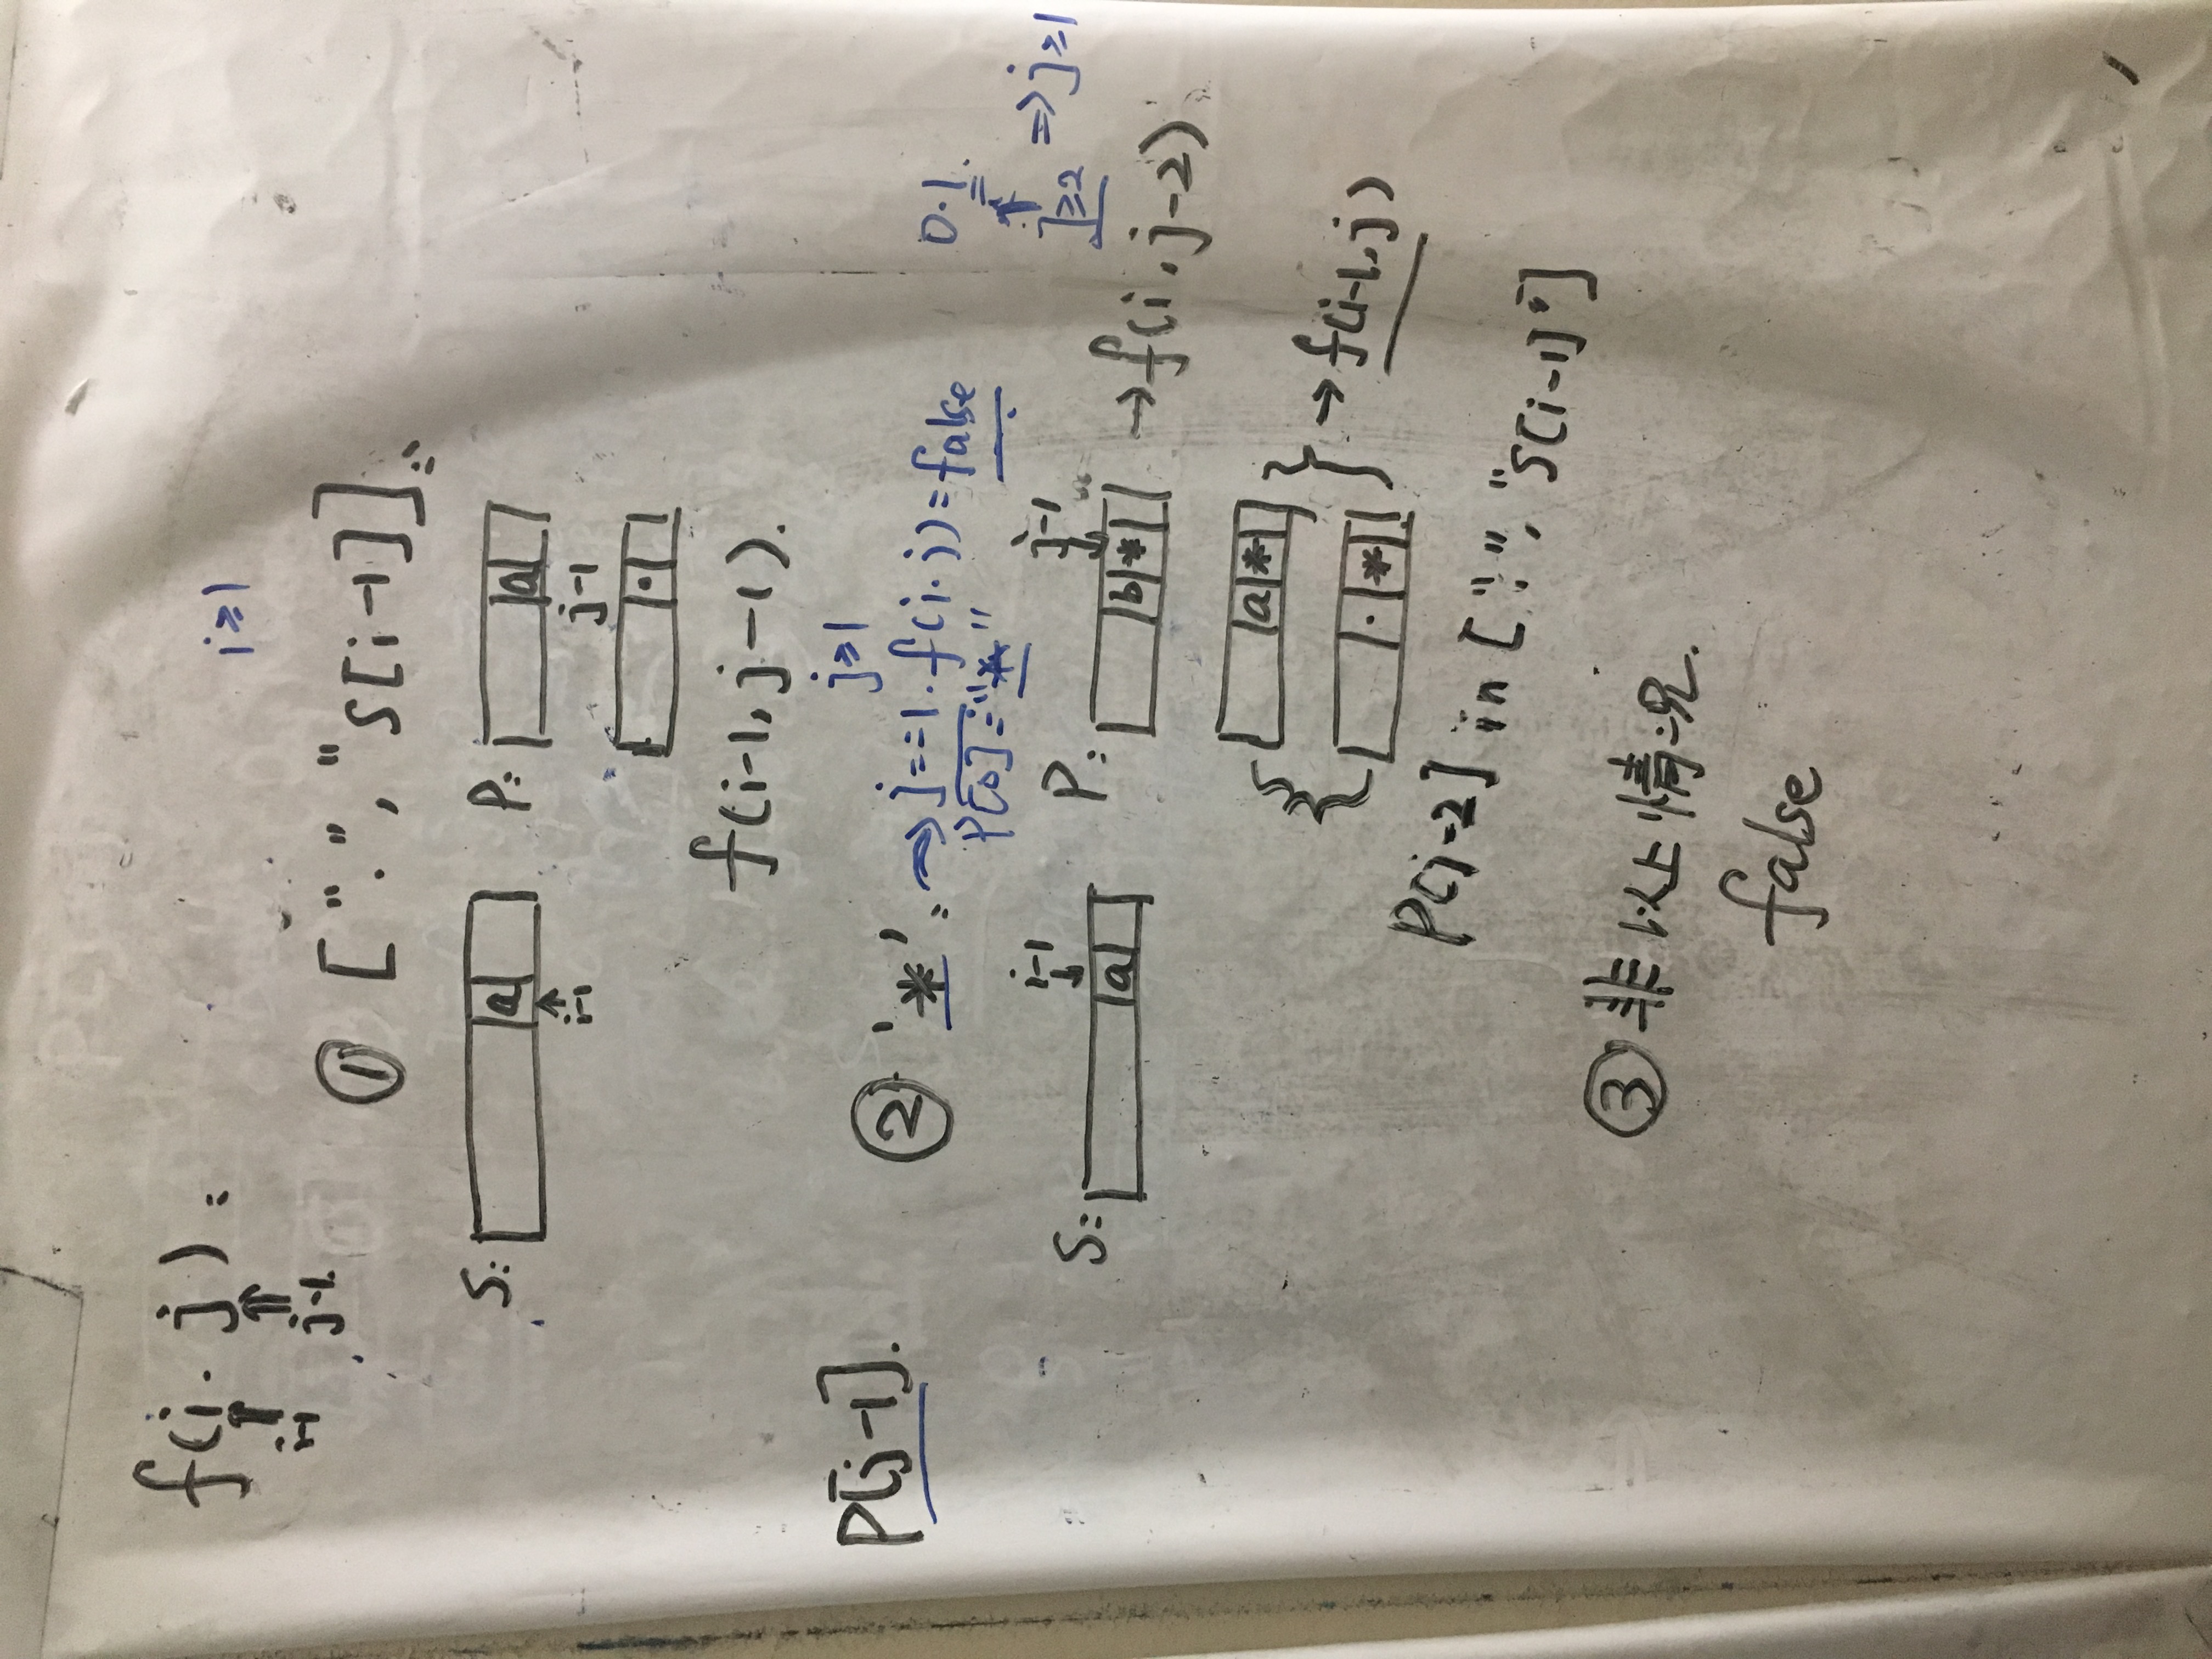 f(i. j):
i-1 j-1
i≥1
① [".", "S[i-1]]:
S: a P: a
i-1 j-1
.
f(i-1, j-1).
j≥1
P[j-1]. ② '*': ⇒ j==1. f(i.j)=false
P[0]="*"
0.1.
j≥2 ⇒ j≥1
i-1 j-1
S: a P: b * → f(i, j-2)
a *
. * → f(i-1, j)
P[j-2] in [".", "S[i-1]"]
③ 非以上情况.
false